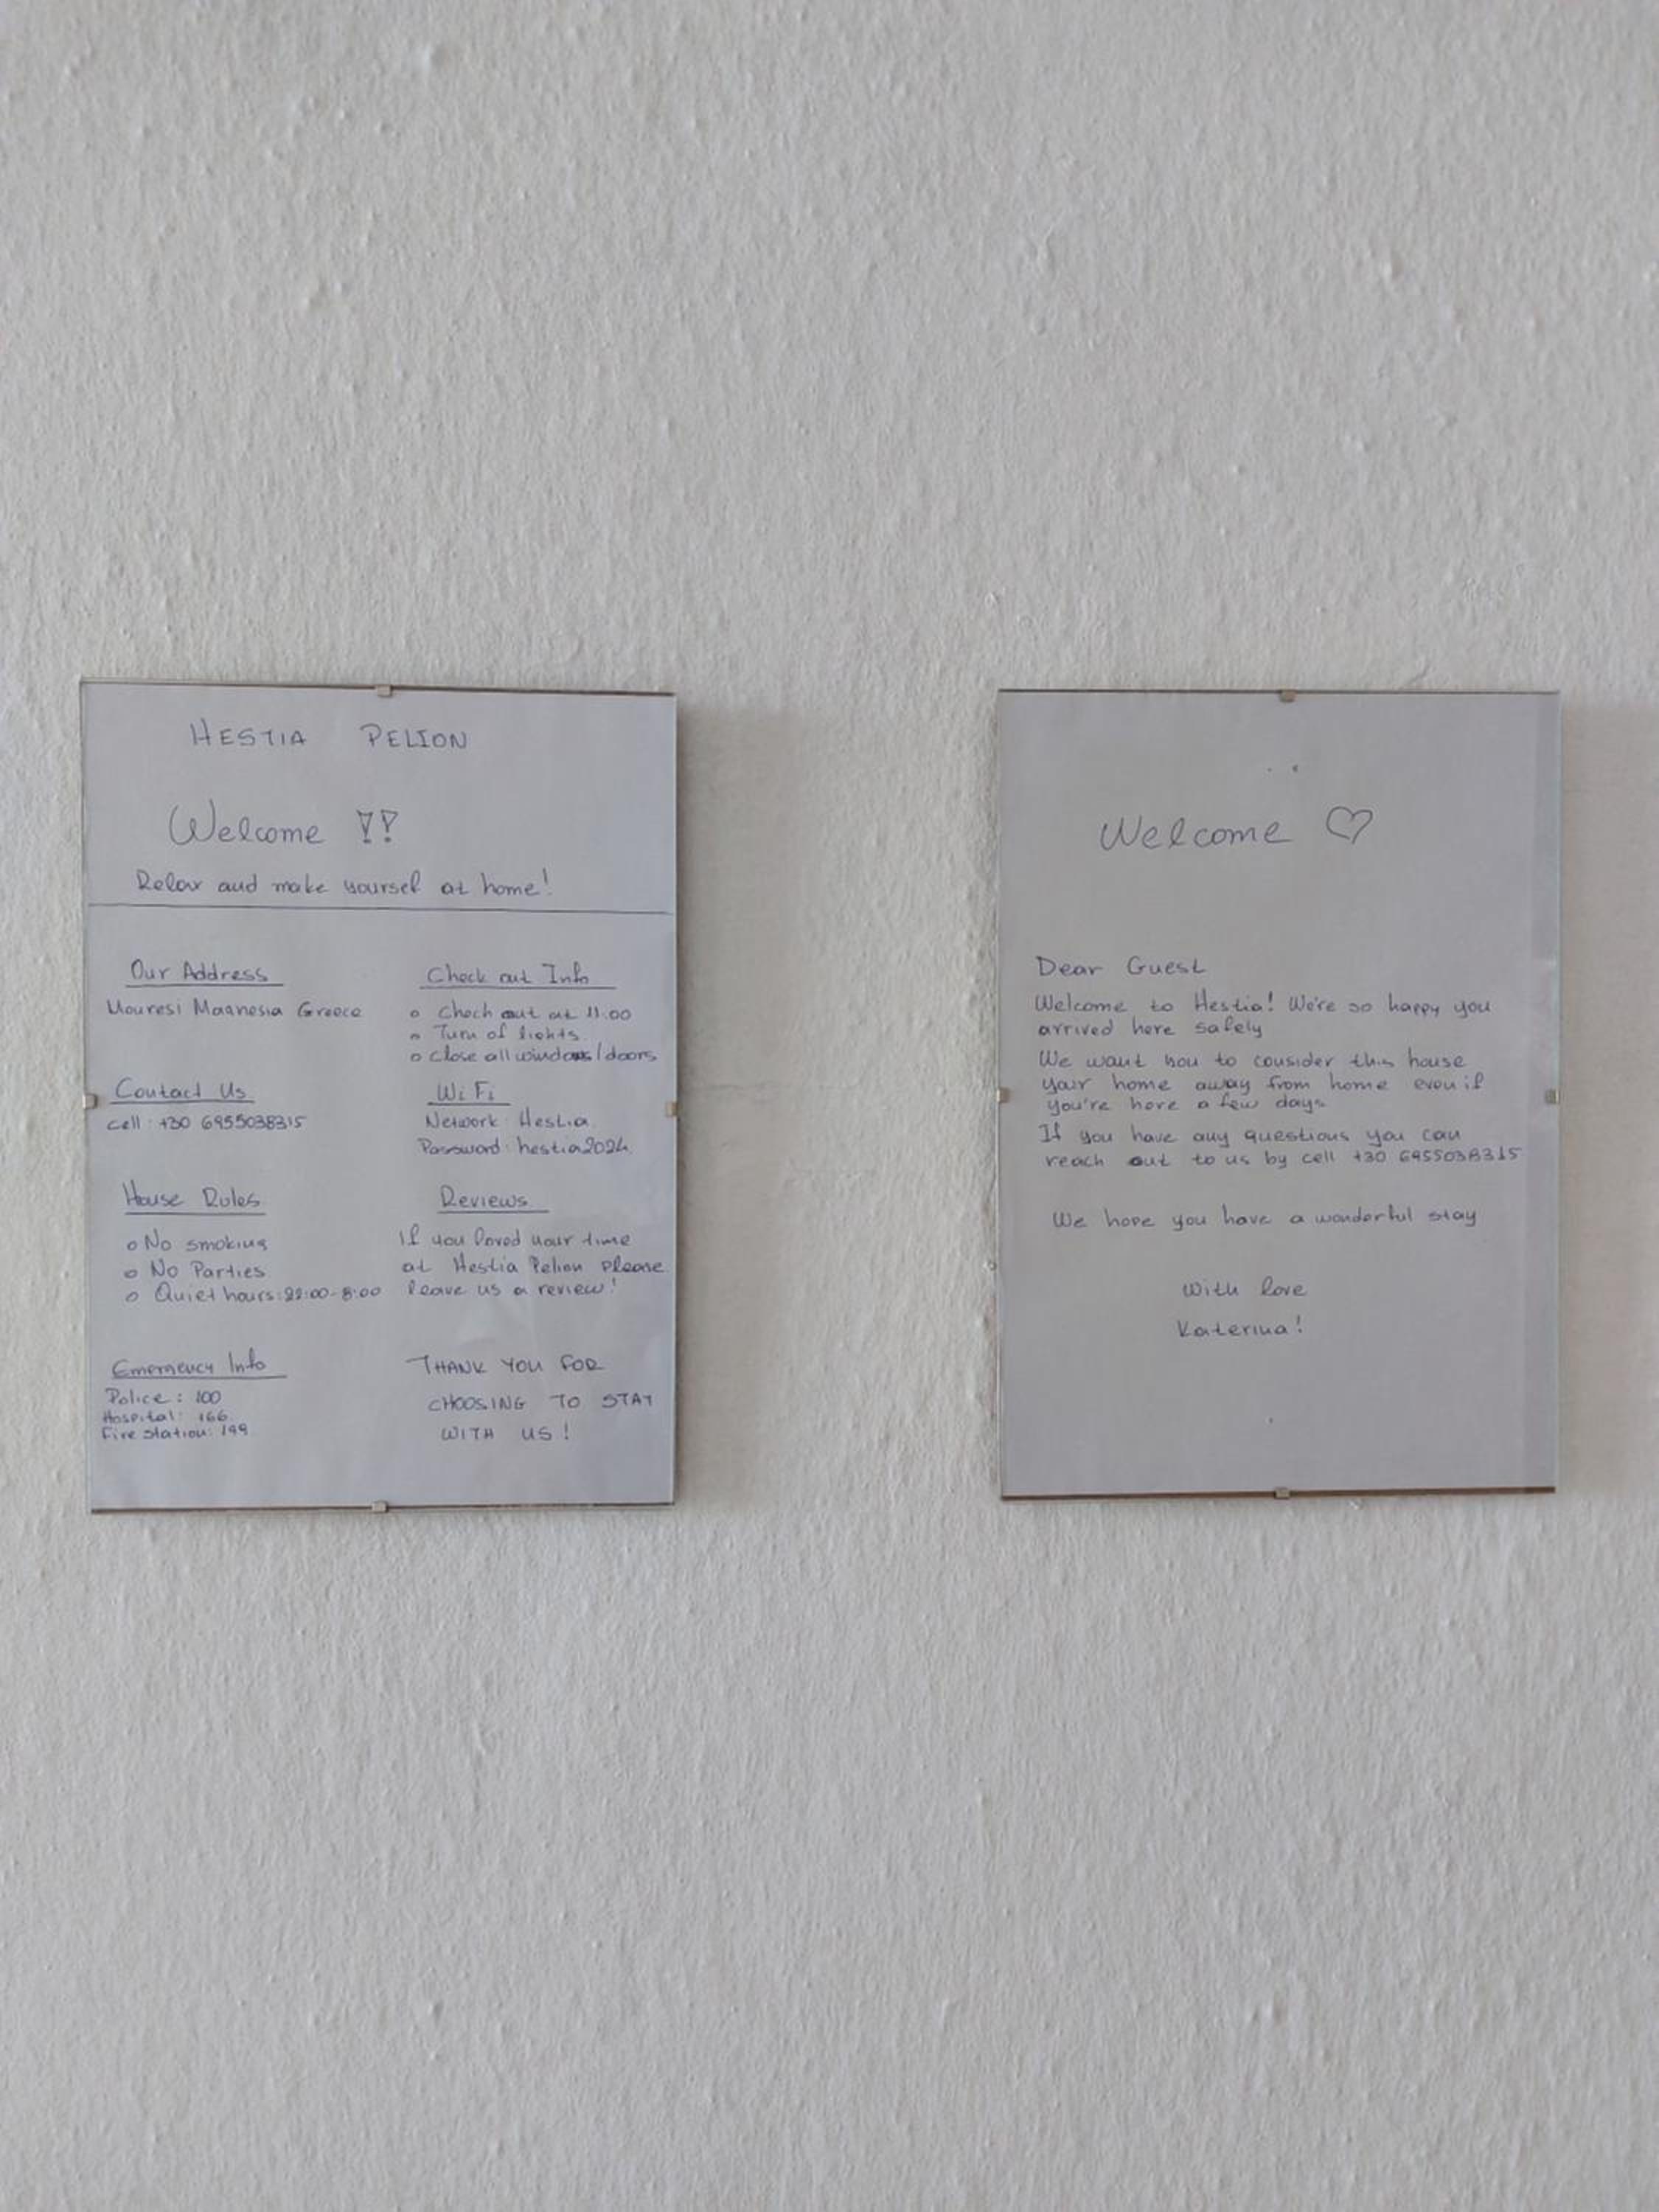 HESTIA PELION
Welcome !!
Relax and make yoursel at home!
Our Address
Mouresi Magnesia Greece
Contact Us
cell: +30 6955038315
House Rules
o No smoking
o No Parties
o Quiet hours: 22:00-8:00
Emergency Info
Police: 100
Hospital: 166
Fire station: 199
Check out Info
o Check out at 11:00
o Turn of lights
o Close all windows/doors
WiFi
Network: Hestia
Password: hestia2024
Reviews
If you loved your time
at Hestia Pelion please
leave us a review!
THANK YOU FOR
CHOOSING TO STAY
WITH US!
Welcome ♡
Dear Guest
Welcome to Hestia! We're so happy you
arrived here safely
We want you to consider this house
your home away from home even if
you're here a few days
If you have any questions you can
reach out to us by cell +30 6955038315
We hope you have a wonderful stay
With love
Katerina!